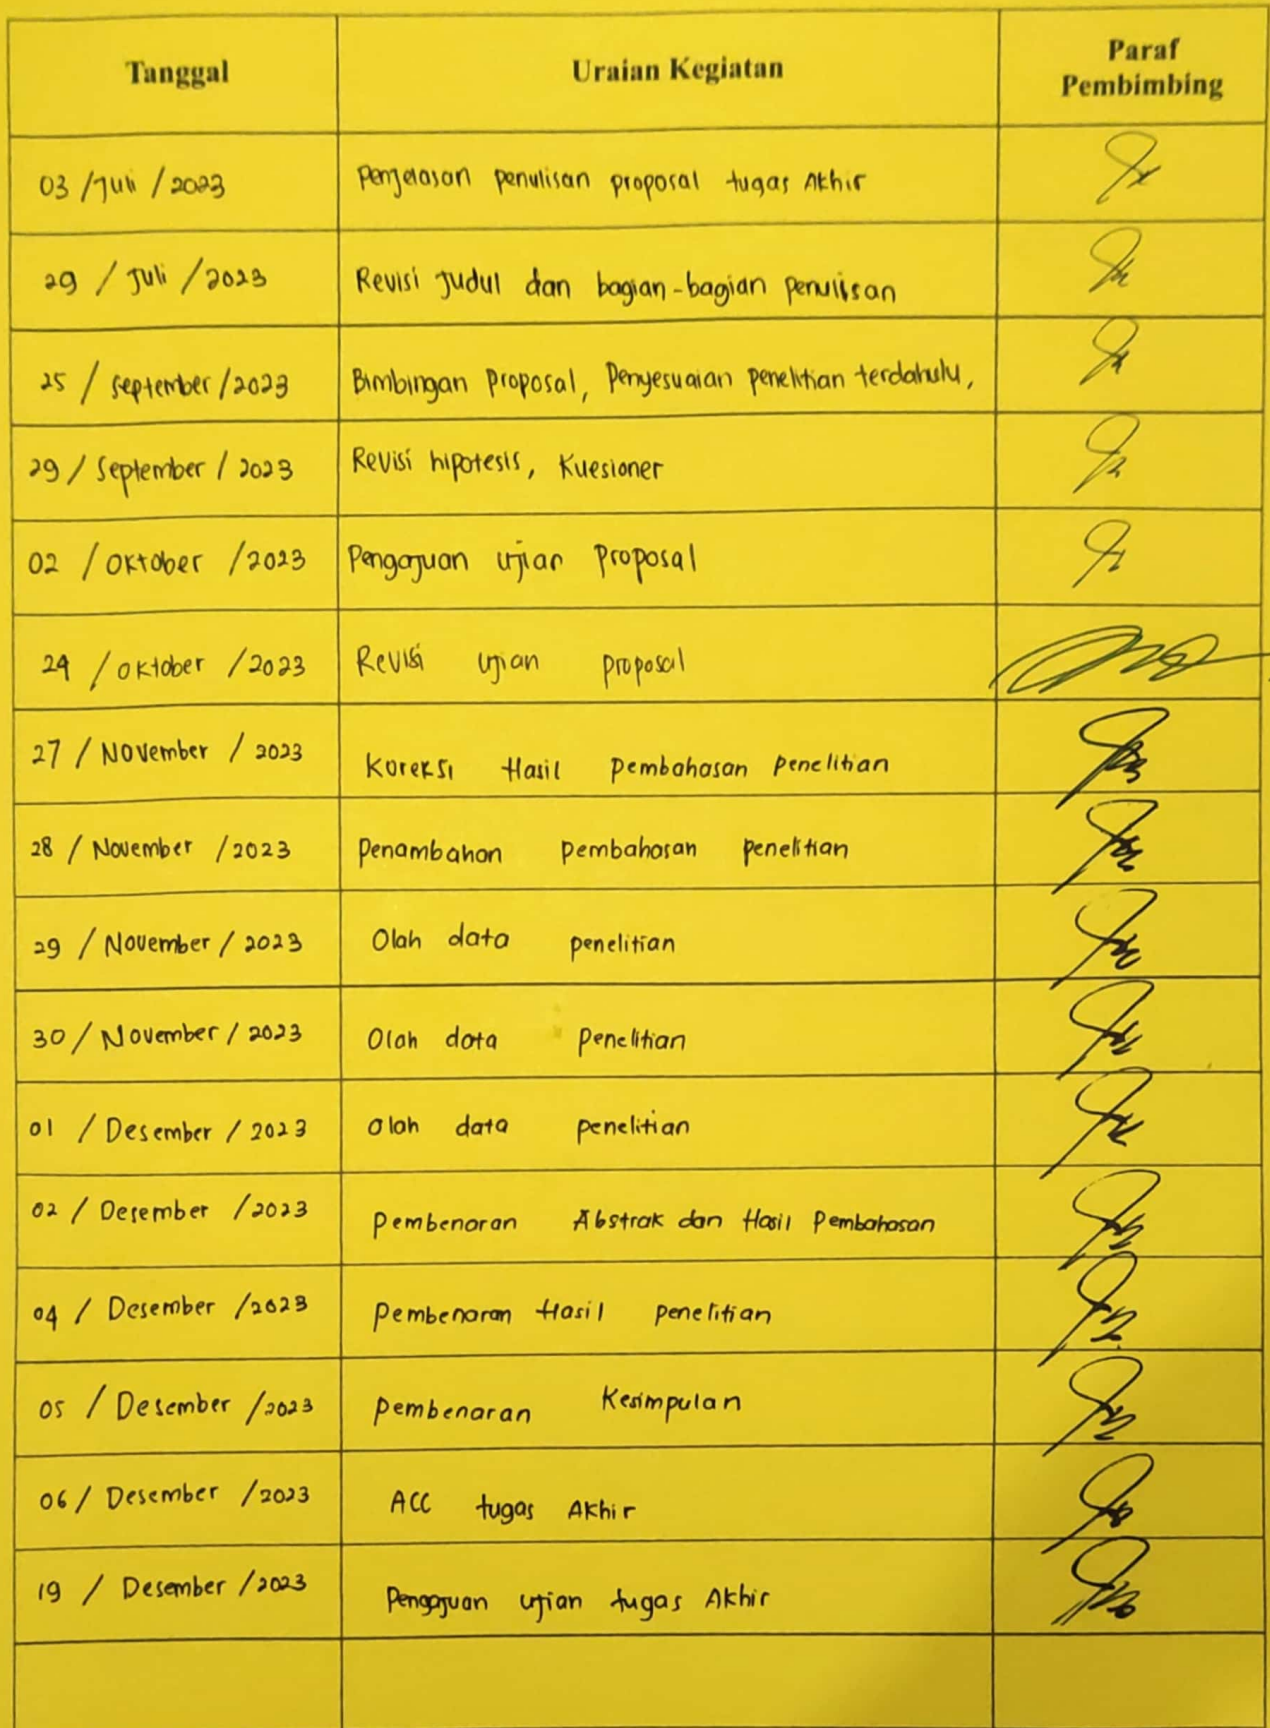 Tanggal Uraian Kegiatan Paraf Pembimbing
03 / Juli / 2023 Penjelasan penulisan proposal tugas Akhir
29 / Juli / 2023 Revisi Judul dan bagian-bagian penulisan
25 / september / 2023 Bimbingan Proposal, Penyesuaian penelitian terdahulu,
29 / September / 2023 Revisi hipotesis, Kuesioner
02 / Oktober / 2023 Pengajuan ujian Proposal
24 / Oktober / 2023 Revisi ujian proposal
27 / November / 2023 Koreksi Hasil pembahasan penelitian
28 / November / 2023 Penambahan pembahasan penelitian
29 / November / 2023 Olah data penelitian
30 / November / 2023 Olah data penelitian
01 / Desember / 2023 Olah data penelitian
02 / Desember / 2023 Pembenaran Abstrak dan Hasil Pembahasan
04 / Desember / 2023 Pembenaran Hasil penelitian
05 / Desember / 2023 Pembenaran Kesimpulan
06 / Desember / 2023 ACC tugas Akhir
19 / Desember / 2023 Pengajuan ujian tugas Akhir